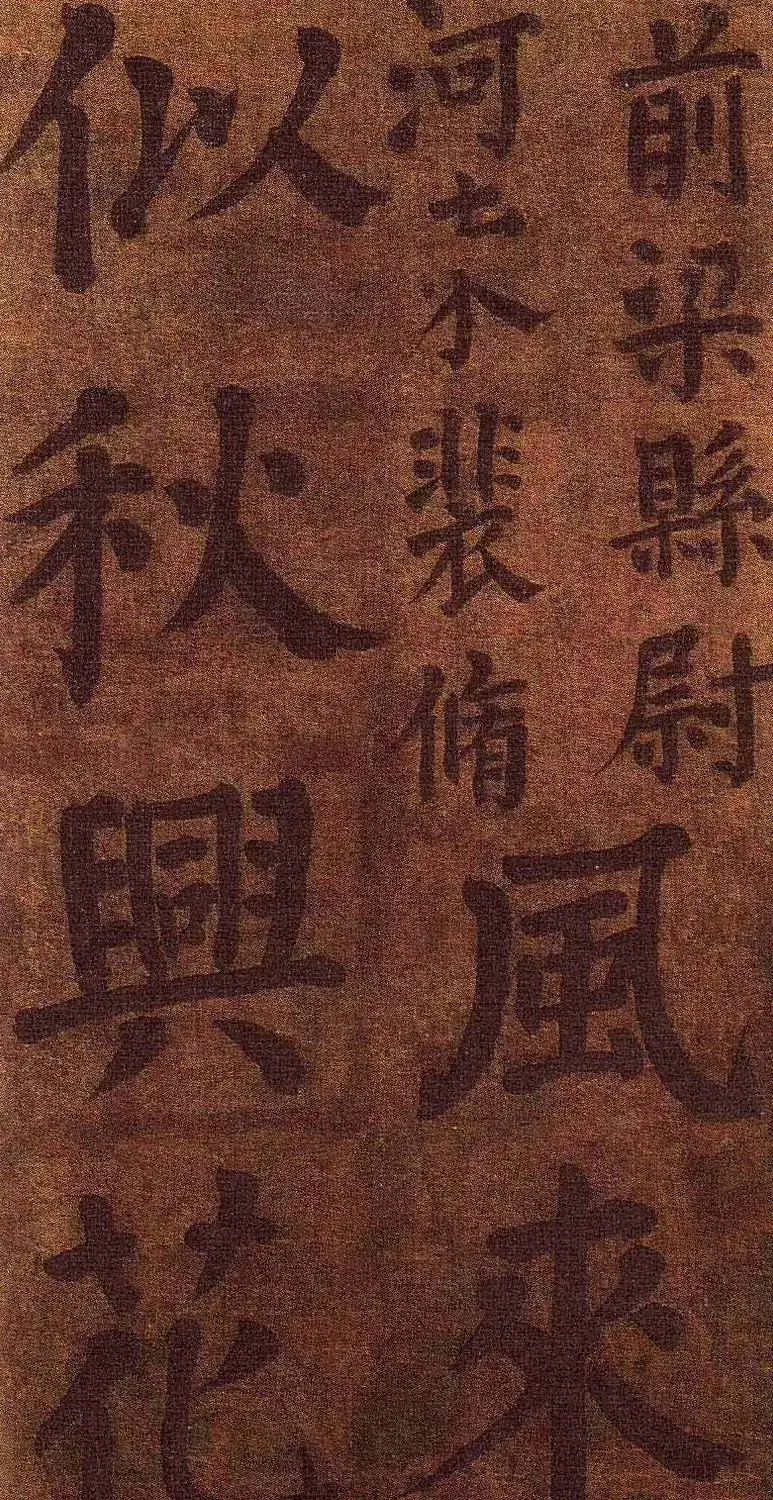 前梁縣尉
河東裴脩
風來
似秋興花